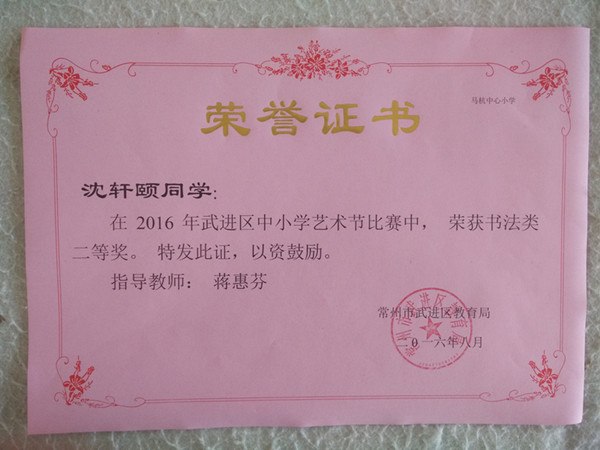 马杭中心小学
荣誉证书
沈轩颐同学：
在 2016 年武进区中小学艺术节比赛中， 荣获书法类
二等奖。 特发此证，以资鼓励。
指导教师： 蒋惠芬
常州市武进区教育局
二〇一六年八月
常州市武进区教育局